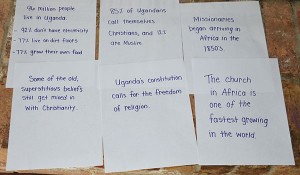 million people
live in Uganda.
- 92% don't have electricity
- 77% live on dirt floors
- 77% grow their own food
85% of Ugandans
call themselves
Christians, and
are Muslim.
Missionaries
began arriving in
Africa in the
1850's
Some of the old,
superstitious beliefs
still get mixed in
with Christianity.
Uganda's constitution
calls for the freedom
of religion.
The church
in Africa is
one of the
fastest growing
in the world.